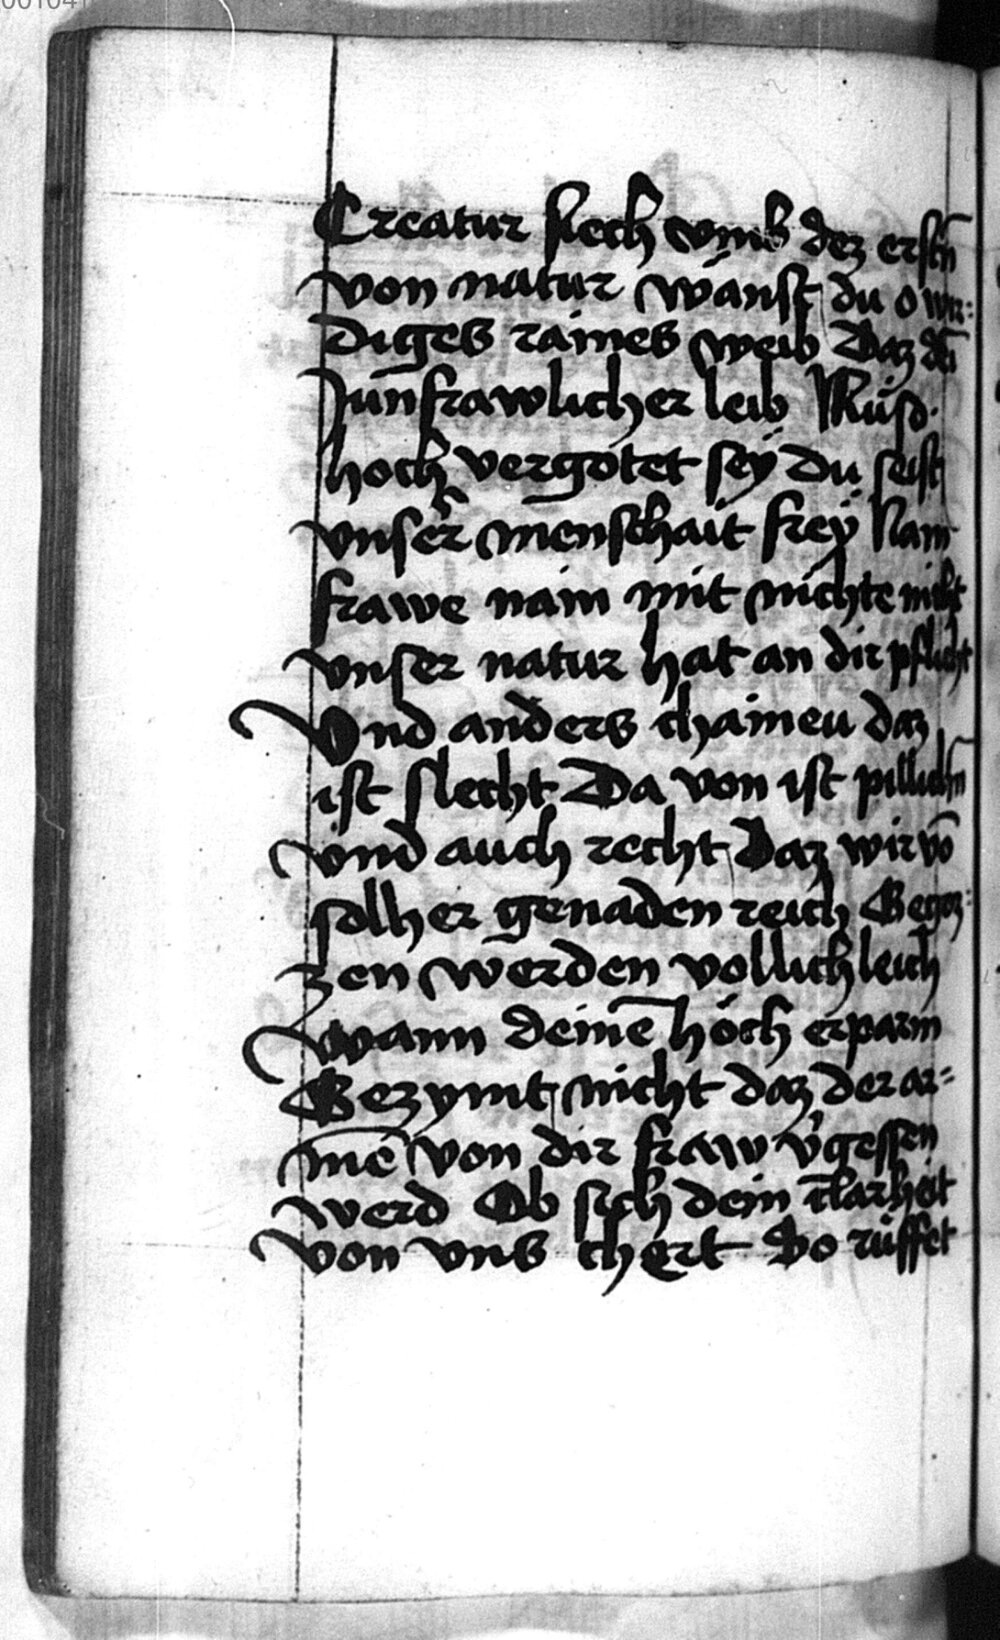 Creatur slech vmb dez erstn̄
von natur wänst du o wir:
diges raines weib Daz dei̅
Junfrawlicher leib Müsd.
hoch vergötet sey du seist
vnser menschait frey Nain
frawe nain mit nichte nicht
vnser natur hat an dir pflicht
Vnd anders chaineu daz
ist slecht Da von ist pillichn̄
vnd auch recht Daz wir vo̅
solher genaden reich Begoz:
zen werden vollichleich
wann deine̅ höch erparm
Gezymt nicht daz der ar=
me̅ von dir fraw v'gessen
werd Ob sich dein clarheit
von vns chert So rüffet